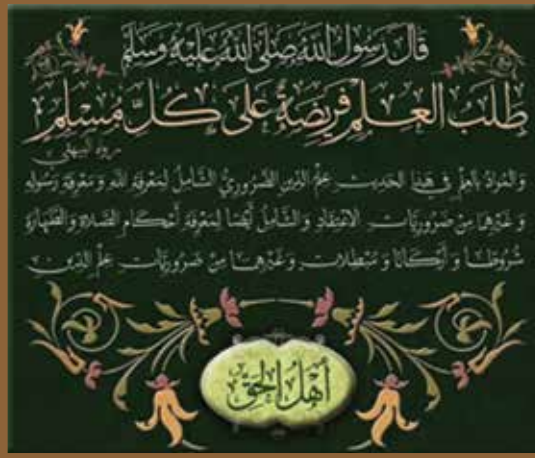 قَالَ رَسُولُ اللَّهِ صَلَّى اللَّهُ عَلَيْهِ وَسَلَّمَ
طَلَبُ الْعِلْمِ فَرِيضَةٌ عَلَى كُلِّ مُسْلِمٍ
رواه البيهقي
وَالْمُرَادُ بِالْعِلْمِ فِي هَذَا الْحَدِيثِ عِلْمُ الدِّينِ الضَّرُورِيُّ الشَّامِلُ لِمَعْرِفَةِ اللَّهِ وَمَعْرِفَةِ رَسُولِهِ
وَغَيْرِهَا مِنْ ضَرُورِيَّاتِ الِاعْتِقَادِ وَالشَّامِلُ أَيْضًا لِمَعْرِفَةِ أَحْكَامِ الصَّلَاةِ وَالطَّهَارَةِ
شُرُوطًا وَأَرْكَانًا وَمُبْطِلَاتٍ وَغَيْرِهَا مِنْ ضَرُورِيَّاتِ عِلْمِ الدِّينِ
أَهْلُ الْحَقِّ